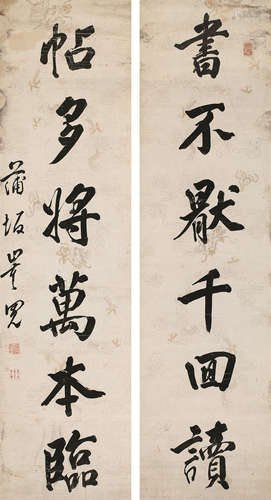 書不厭千回讀
帖多將萬本臨
蒲坂